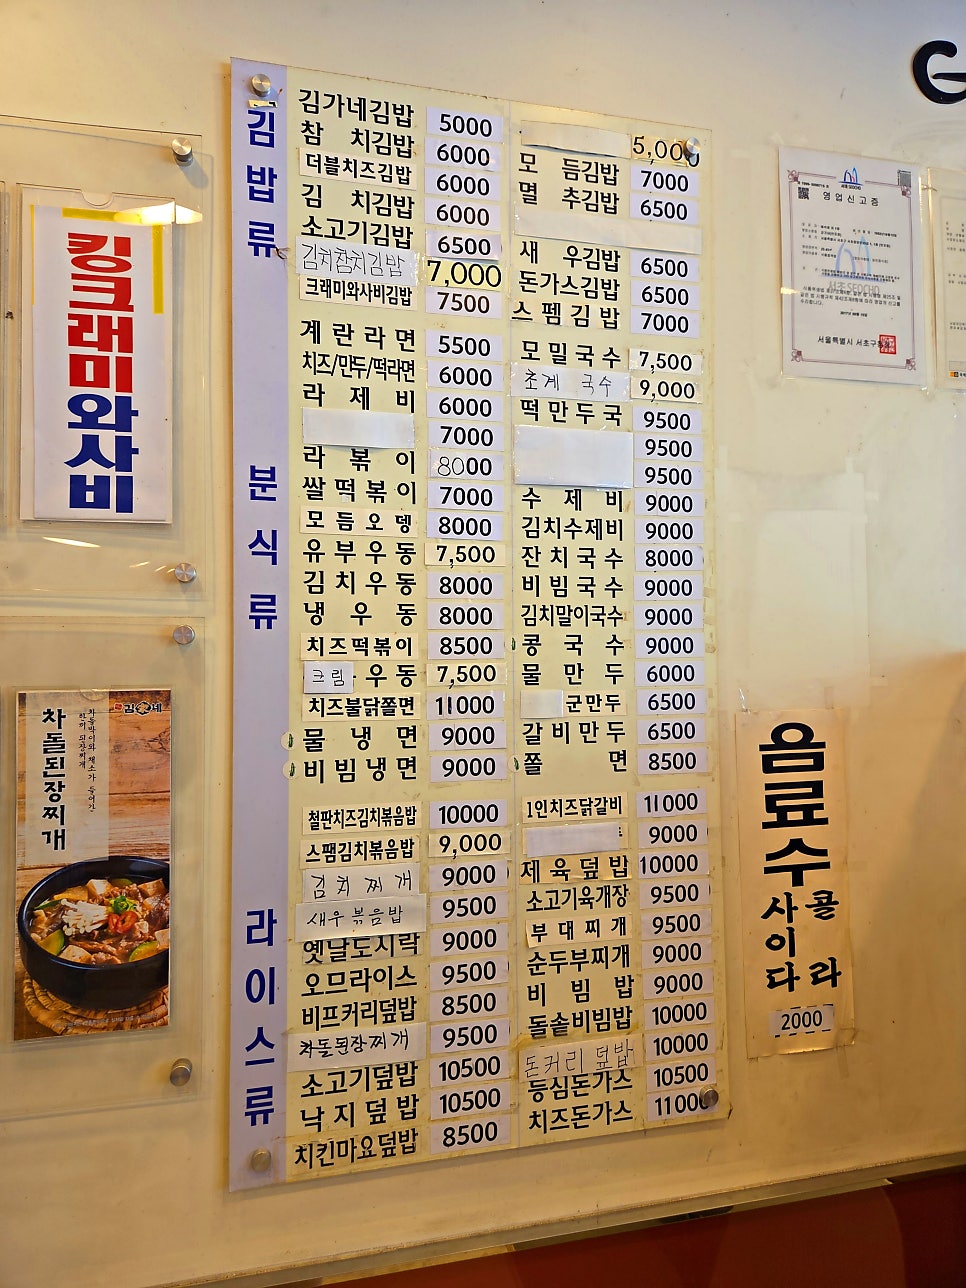 킹크래미와사비
차돌된장찌개
차돌박이와 채소가 들어간
김가네
김밥류
김가네김밥 5000
참치김밥 6000
더블치즈김밥 6000
김치김밥 6000
소고기김밥 6500
김치참치김밥 7,000
크래미와사비김밥 7500
5,000
모듬김밥 7000
멸추김밥 6500
새우김밥 6500
돈가스김밥 6500
스팸김밥 7000
분식류
계란라면 5500
치즈/만두/떡라면 6000
라제비 6000
7000
라볶이 8000
쌀떡볶이 7000
모듬오뎅 8000
유부우동 7,500
김치우동 8000
냉우동 8000
치즈떡볶이 8500
크림우동 7,500
치즈불닭쫄면 11000
물냉면 9000
비빔냉면 9000
모밀국수 7,500
초계국수 9,000
떡만두국 9500
9500
9500
수제비 9000
김치수제비 9000
잔치국수 8000
비빔국수 9000
김치말이국수 9000
콩국수 9000
물만두 6000
군만두 6500
갈비만두 6500
쫄면 8500
라이스류
철판치즈김치볶음밥 10000
스팸김치볶음밥 9,000
김치찌개 9000
새우볶음밥 9500
옛날도시락 9000
오므라이스 9500
비프커리덮밥 8500
차돌된장찌개 9500
소고기덮밥 10500
낙지덮밥 10500
치킨마요덮밥 8500
1인치즈닭갈비 11000
9000
제육덮밥 10000
소고기육개장 9500
부대찌개 9500
순두부찌개 9000
비빔밥 9000
돌솥비빔밥 10000
돈커리덮밥 10000
등심돈가스 10500
치즈돈가스 11000
서초 SEOCHO
영업신고증
서울특별시 서초구청장
음료수
콜라
사이다
2000
G